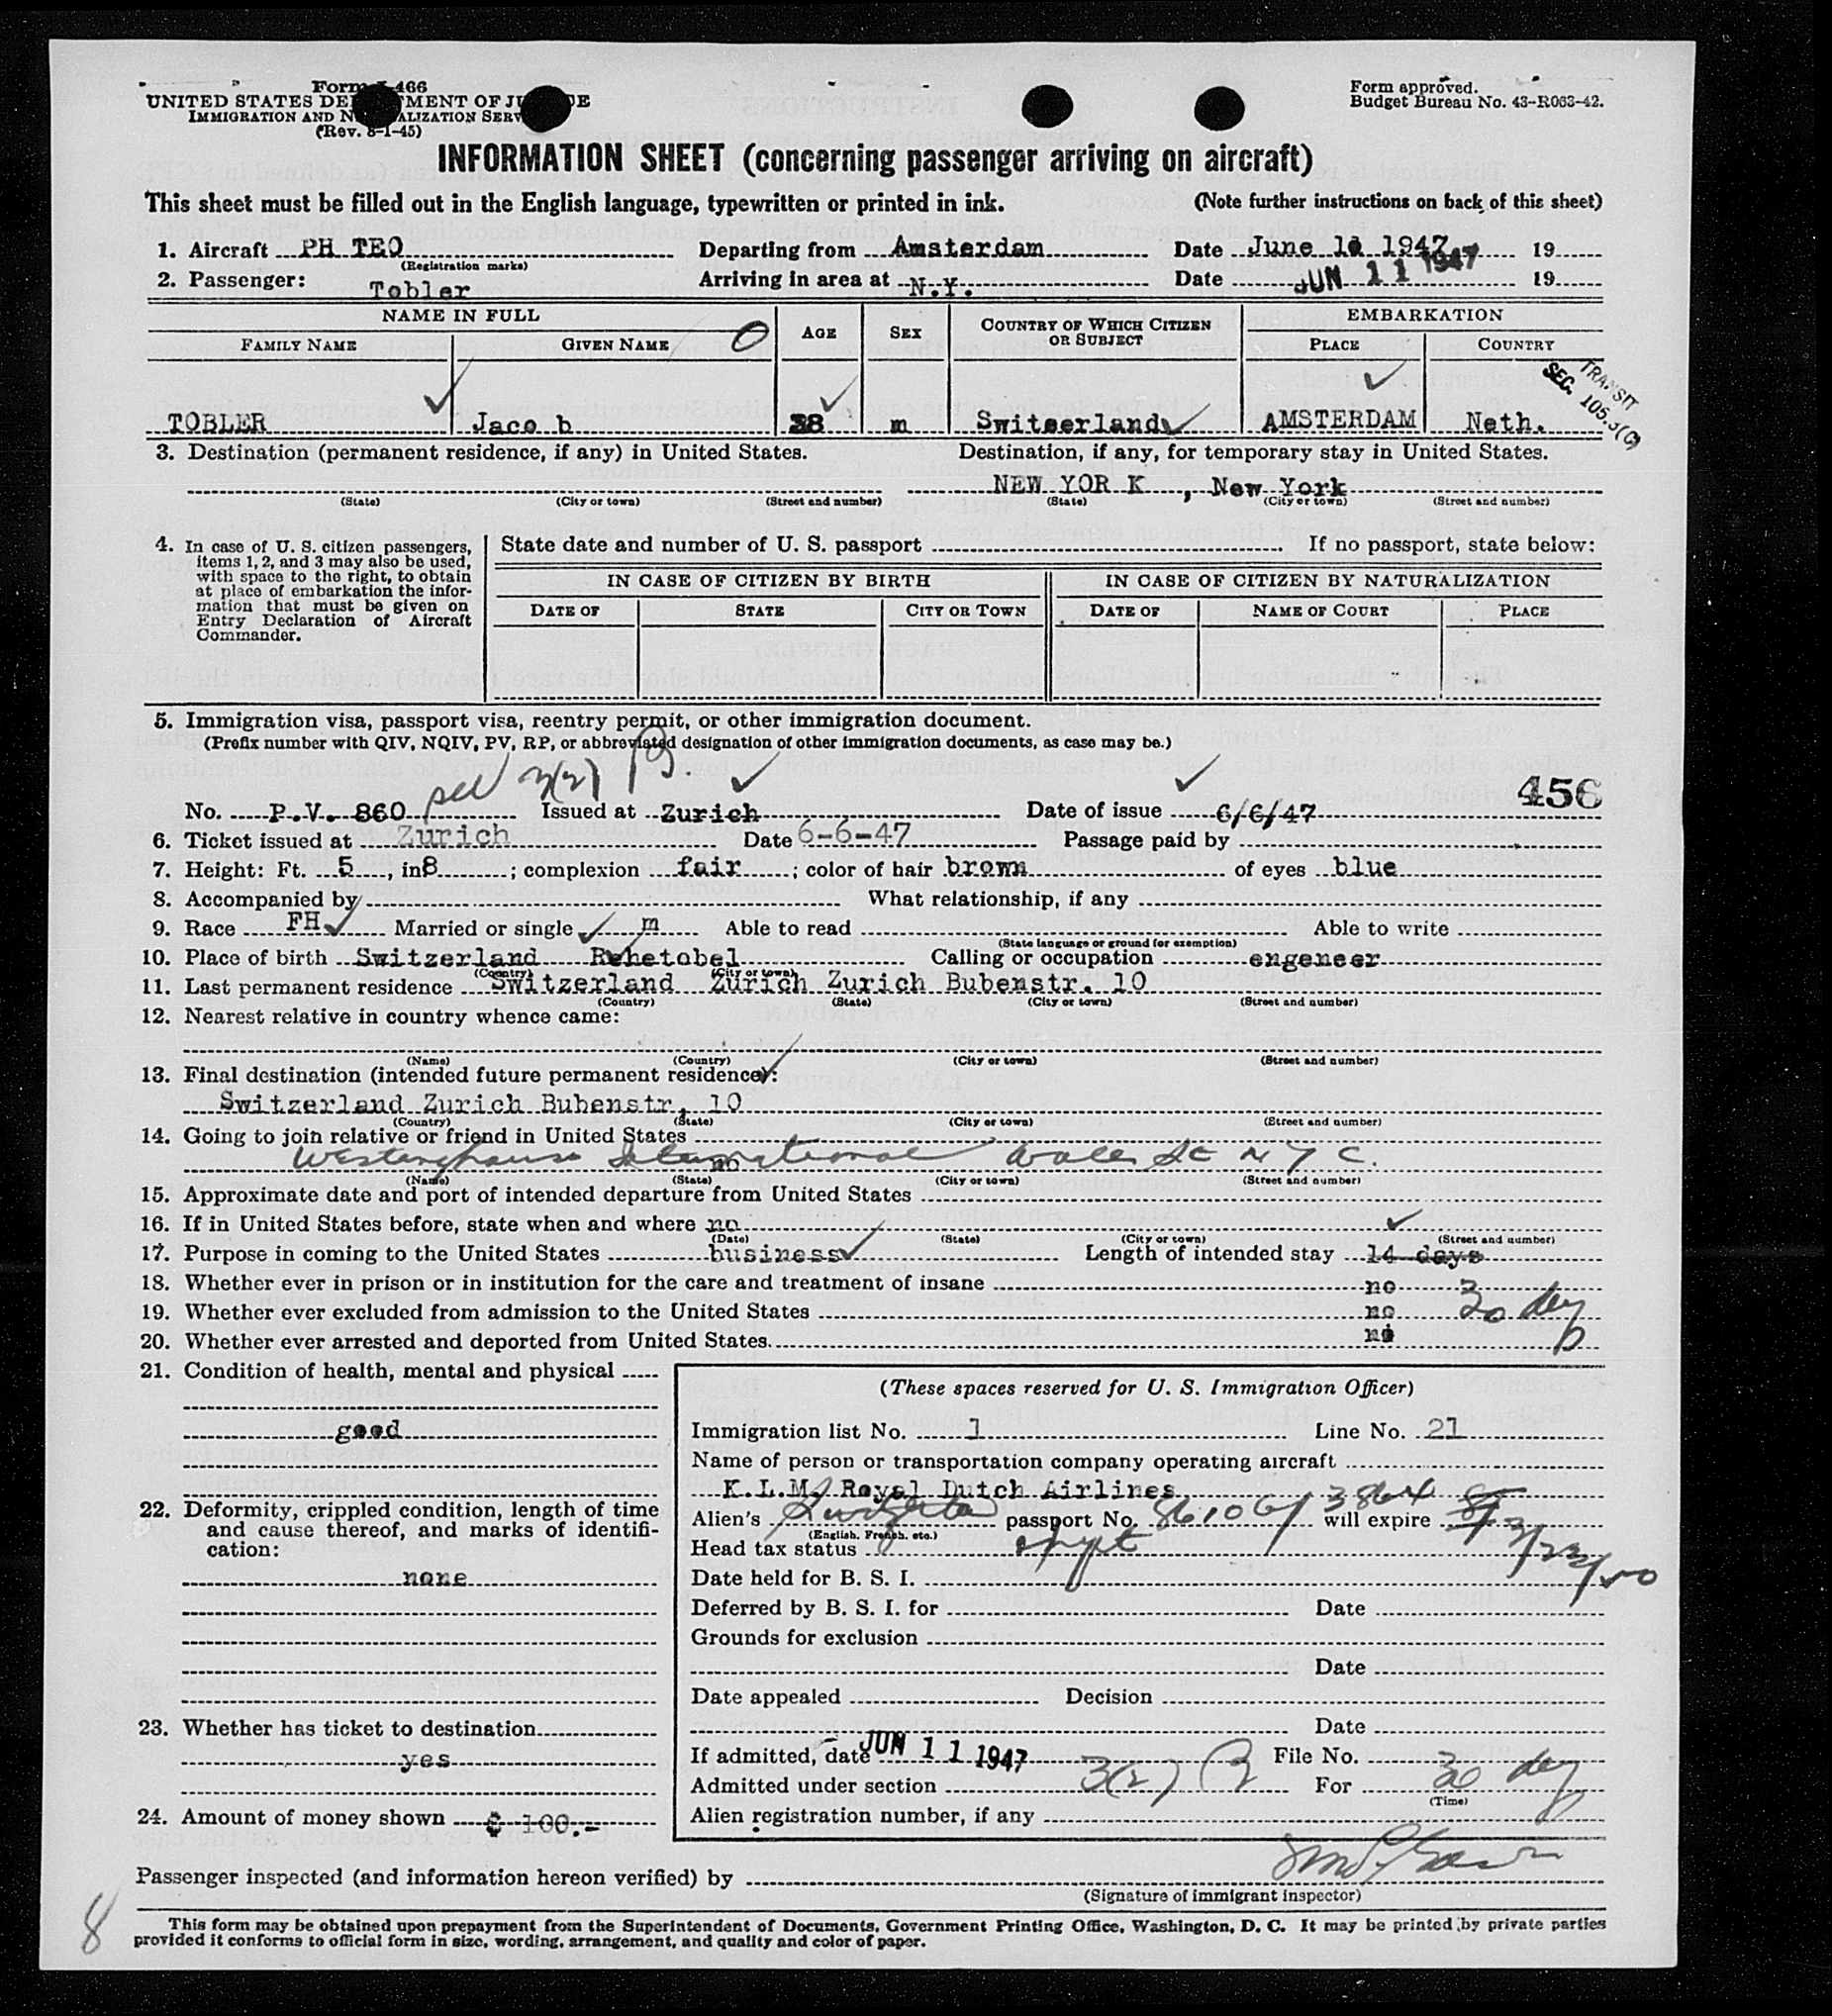 Form I-466
UNITED STATES DEPARTMENT OF JUSTICE
IMMIGRATION AND NATURALIZATION SERVICE
(Rev. 8-1-45)
Form approved.
Budget Bureau No. 43-R063-42.
INFORMATION SHEET (concerning passenger arriving on aircraft)
This sheet must be filled out in the English language, typewritten or printed in ink. (Note further instructions on back of this sheet)
1. Aircraft PH TEO Departing from Amsterdam Date June 1947 19
(Registration marks)
2. Passenger: Tobler Arriving in area at N.Y. Date JUN 11 1947 19
NAME IN FULL AGE SEX COUNTRY OF WHICH CITIZEN OR SUBJECT EMBARKATION
FAMILY NAME GIVEN NAME PLACE COUNTRY
TRANSIT
SEC. 105.3(C)
TOBLER Jaco b 38 m Switserland AMSTERDAM Neth.
3. Destination (permanent residence, if any) in United States. Destination, if any, for temporary stay in United States.
NEW YOR K , New York
(State) (City or town) (Street and number) (State) (City or town) (Street and number)
4. In case of U. S. citizen passengers, items 1, 2, and 3 may also be used, with space to the right, to obtain at place of embarkation the information that must be given on Entry Declaration of Aircraft Commander.
State date and number of U. S. passport If no passport, state below:
IN CASE OF CITIZEN BY BIRTH IN CASE OF CITIZEN BY NATURALIZATION
DATE OF STATE CITY OR TOWN DATE OF NAME OF COURT PLACE
5. Immigration visa, passport visa, reentry permit, or other immigration document.
(Prefix number with QIV, NQIV, PV, RP, or abbreviated designation of other immigration documents, as case may be.)
3(2) B.
456
No. P.V. 860 Issued at Zurich Date of issue 6/6/47
6. Ticket issued at Zurich Date 6-6-47 Passage paid by
7. Height: Ft. 5, in 8; complexion fair; color of hair brown of eyes blue
8. Accompanied by What relationship, if any
9. Race FH Married or single m Able to read Able to write
(State language or ground for exemption)
10. Place of birth Switzerland Rehetobel Calling or occupation engeneer
(Country) (City or town)
11. Last permanent residence Switzerland Zurich Zurich Bubenstr. 10
(Country) (State) (City or town) (Street and number)
12. Nearest relative in country whence came:
(Name) (Country) (City or town) (Street and number)
13. Final destination (intended future permanent residence):
Switzerland Zurich Bubenstr, 10
(Country) (State) (City or town) (Street and number)
14. Going to join relative or friend in United States
no
Westinghouse International Wall St N Y C.
(Name) (State) (City or town) (Street and number)
15. Approximate date and port of intended departure from United States
16. If in United States before, state when and where no
(Date) (State) (City or town) (Street and number)
17. Purpose in coming to the United States business Length of intended stay 14 days
18. Whether ever in prison or in institution for the care and treatment of insane no
19. Whether ever excluded from admission to the United States no 30 dey
20. Whether ever arrested and deported from United States. no
21. Condition of health, mental and physical
good
22. Deformity, crippled condition, length of time and cause thereof, and marks of identification:
none
23. Whether has ticket to destination
yes
24. Amount of money shown $ 100.-
(These spaces reserved for U. S. Immigration Officer)
Immigration list No. 1 Line No. 21
Name of person or transportation company operating aircraft
K.L.M. Royal Dutch Airlines
Alien's passport No. 861061/3864 will expire 3/22/50
(English, French, etc.)
Head tax status
Date held for B. S. I.
Deferred by B. S. I. for Date
Grounds for exclusion
Date
Date appealed Decision
Date
If admitted, date JUN 11 1947 File No.
Admitted under section 3(2) B For 30 dey
(Time)
Alien registration number, if any
Passenger inspected (and information hereon verified) by
(Signature of immigrant inspector)
8
This form may be obtained upon prepayment from the Superintendent of Documents, Government Printing Office, Washington, D. C. It may be printed by private parties
provided it conforms to official form in size, wording, arrangement, and quality and color of paper.